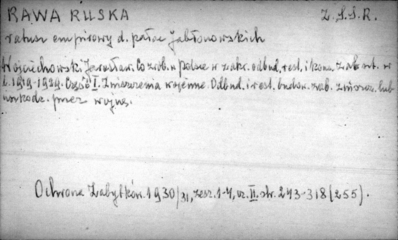 RAWA RUSKA Z.S.S.R.
ratusz empirowy d. pałac Jabłonowskich
Wojciechowski Jarosław. Co zrob. w Polsce w zakr. odbud, rest. i kons. zab. szt. w
l. 1919-1929. Część I. Zniszczenia wojenne. Odbud. i rest. budow. zab. zniszcz. lub
uszkodz. przez wojnę.
Ochrona Zabytków. 1930/31, zesz. 1-4, cz. II. str. 243-318 (255).